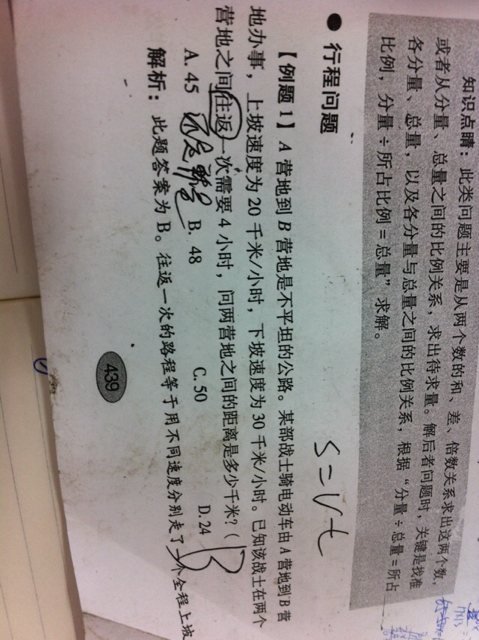 知识点睛：此类问题主要是从两个数的和、差、倍数关系求出这两个数，
或者从分量、总量之间的比例关系，求出待求量。解后者问题时，关键是找准
各分量、总量，以及各分量与总量之间的比例关系，根据“分量÷总量=所占
比例，分量÷所占比例=总量”求解。
● 行程问题
S=Vt
【例题1】A营地到B营地是不平坦的公路。某部战士骑电动车由A营地到B营
地办事，上坡速度为20千米/小时，下坡速度为30千米/小时。已知该战士在两个
营地之间往返一次需要4小时，问两营地之间的距离是多少千米？（B
A. 45 B. 48 C. 50 D. 24
解析：此题答案为B。往返一次的路程等于用不同速度分别走了一个全程上坡
439